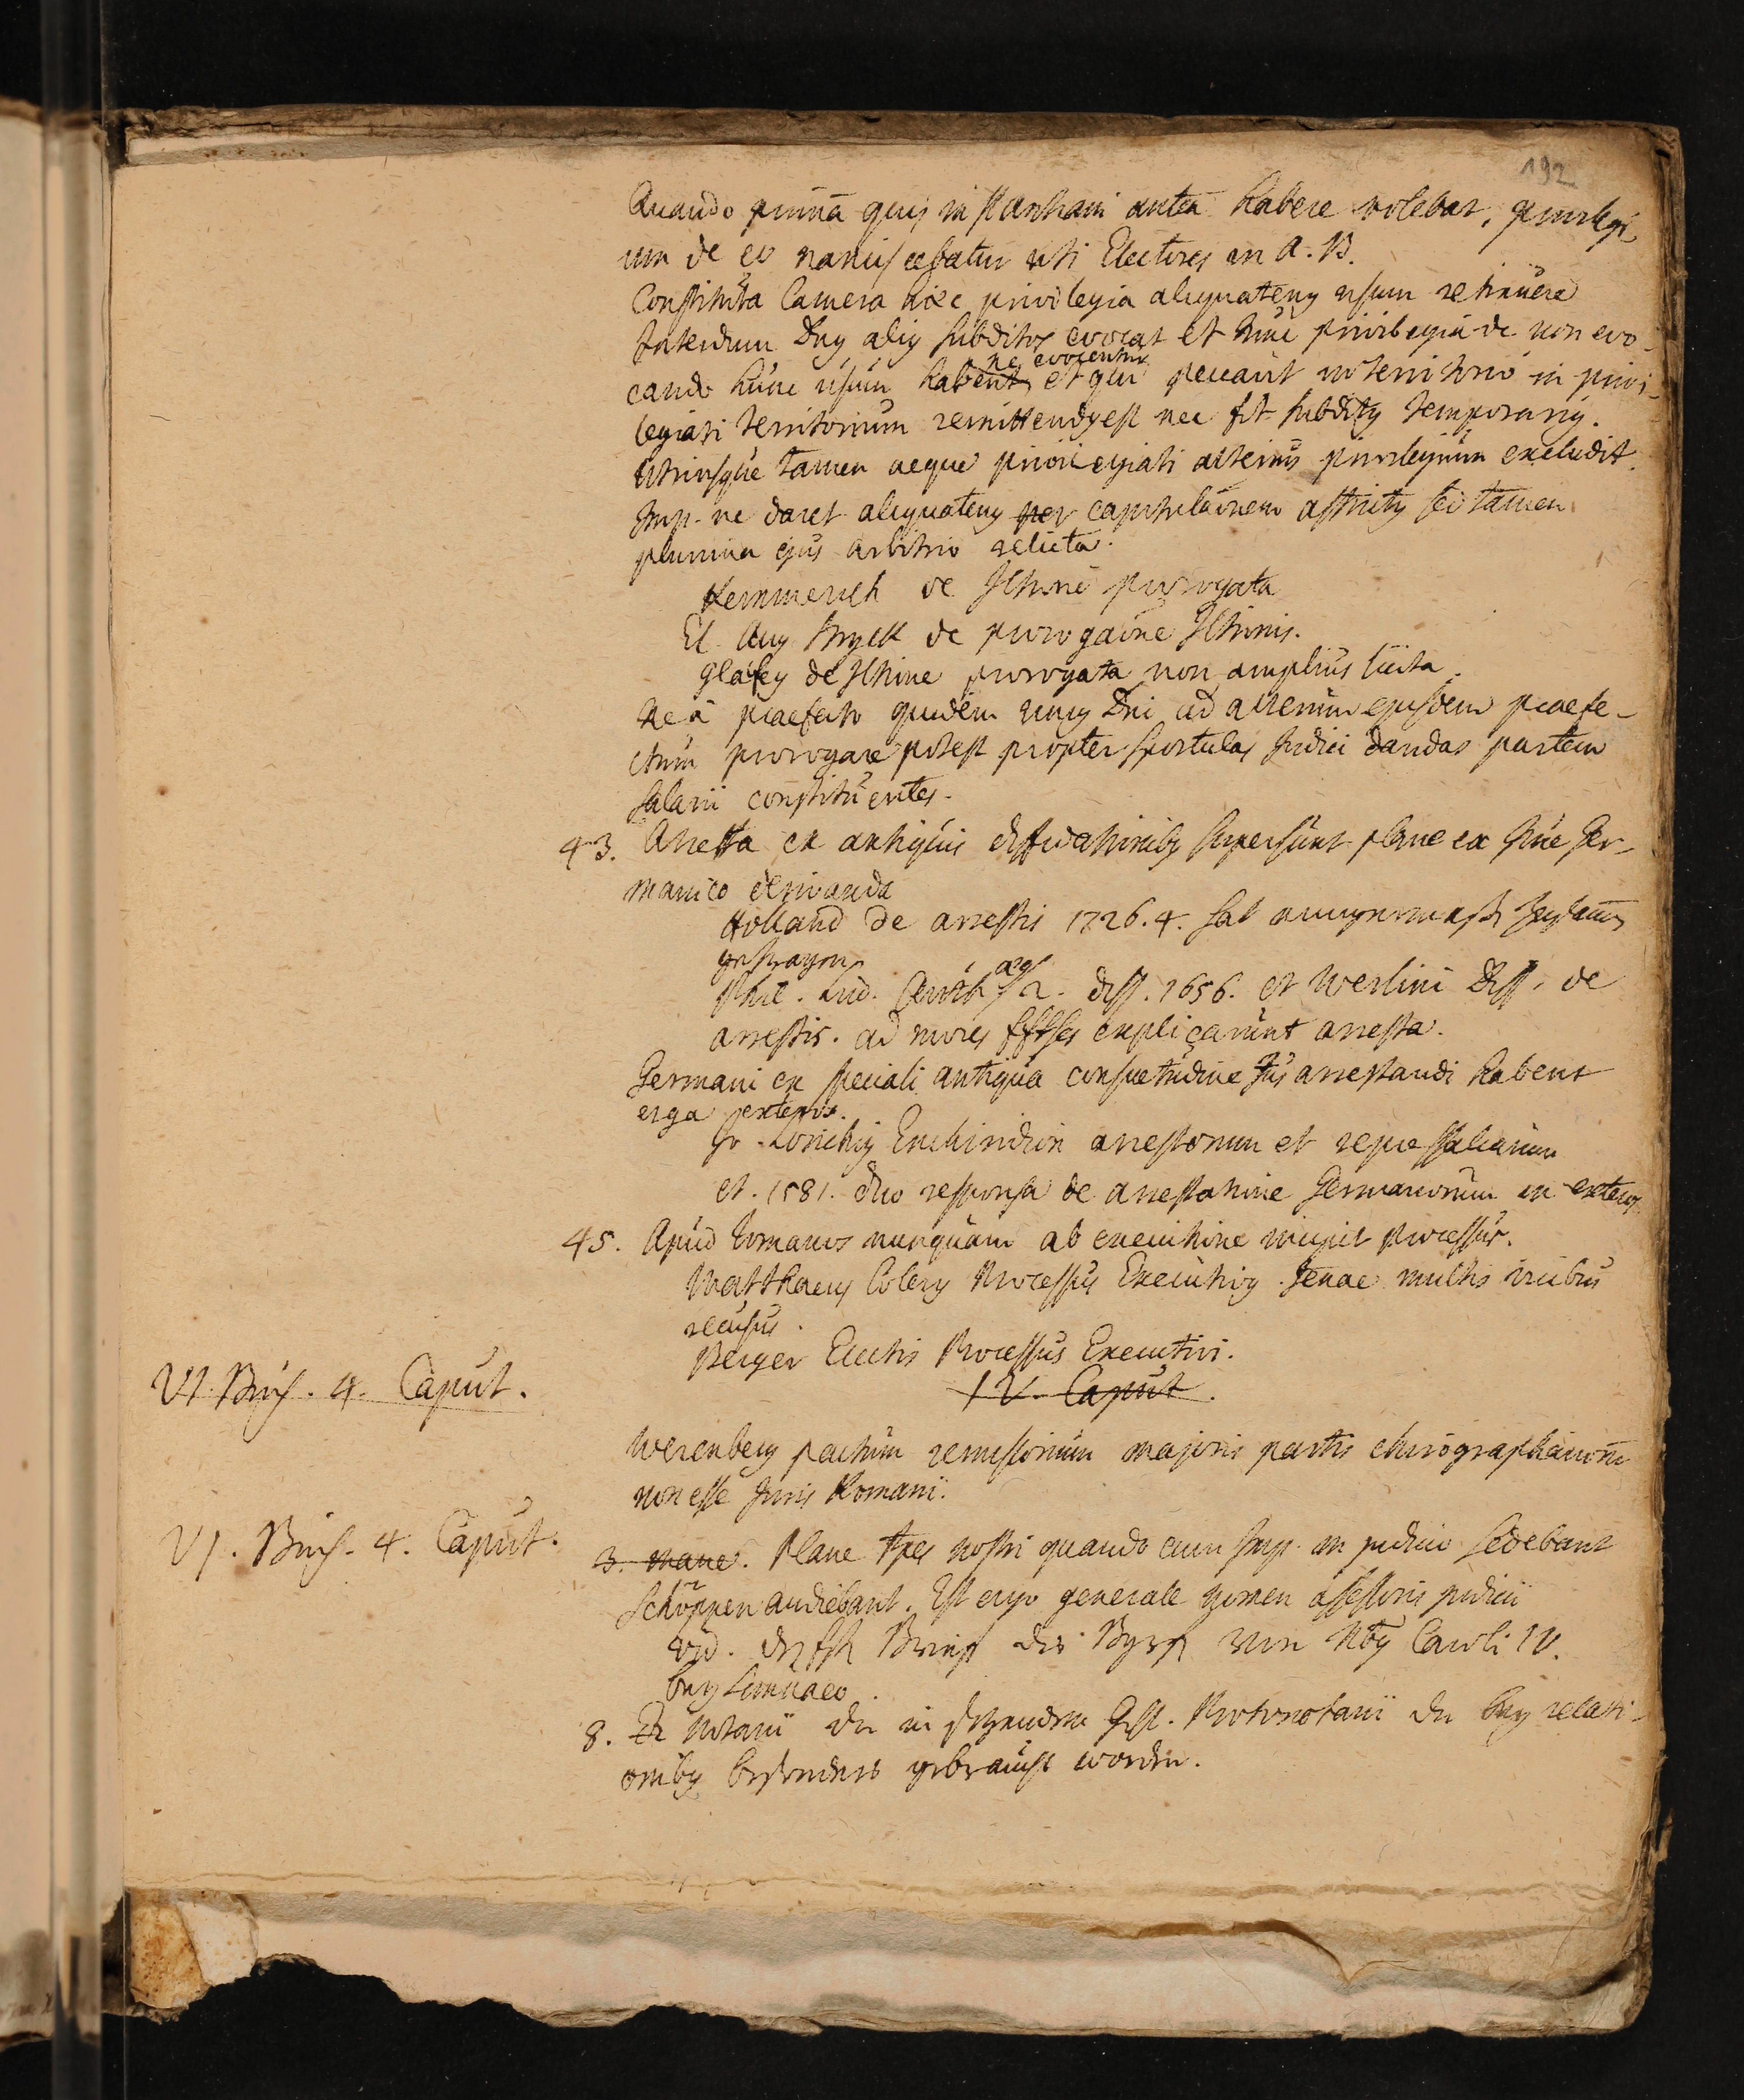 192
Quando prima quis instantiam antea habere volebat, privilegi-
um de eo nanciscebatur uti Electores in A. B.
Constituta Camera haec privilegia aliquatenus usum retinuere
Interdum Dnus alius subditos evocat et hinc privilegia de non evo-
cando hunc usum habent ne evocentur et qui peccavit in territorio in privi-
legiati territorium remittendus est nec fit subditus temporarius.
Utriusque tamen aeque privilegiati alterius privilegium excludit.
Imp. ne daret aliquatenus per capitulationem astrictus sed tamen
plurima ejus arbitrio relicta.
Kemmerich de Jctione prorogata
El. Aug. Stryck de prorogatione Jctionis.
Glafey de Jctione prorogata non amplius licita.
Ne a praefecto quidem unius Dni ad alterum ejusdem praefe-
ctum prorogare potest propter sportulas Judici dandas partem
salarii constituentes.
43. Arresta ex antiquis diffidationibus supersunt plane ex Jure Ger-
manico derivanda
Holland de arrestis 1726. 4.
Phil. Lud. diss. 1656. et Werlini Diss. de
arrestis. ad mores explicarunt arresta.
Germani ex speciali antiqua consuetudine Jus arrestandi habent
erga exteros.
Enchiridion arrestorum et repressaliarum
et. 1581. duo responsa de arrestatione Germanorum in exteros
45. Apud Romanos nunquam ab executione incipit processus.
Matthaeus Colerus Processus Executivus Jenae multis vicibus
recusus.
Berger Electis Processus Executivi.
VI Buch. 4. Caput.
IV. Caput.
Werenberg pactum remissorium majoris partis chirographariorum
non esse Juris Romani.
VI. Buch. 4. Caput.
3. mane. Plane Ppes nostri quando cum Imp. in judicio sedebant
Schöppen audiebant. Est ergo generale nomen assessoris judicii
vid. Caroli IV.
bey Limnaeo.
8. Die Notarii die Protonotarii die bey relati-
onibus besonders gebraucht worden.